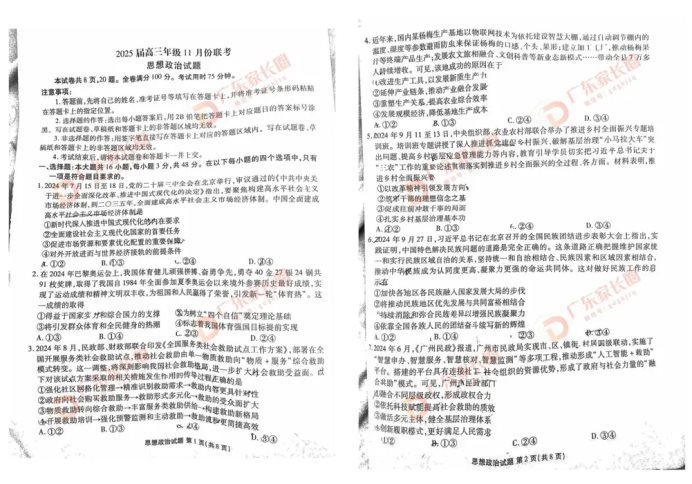 2025届高三年级11月份联考
思想政治试题
本试卷共8页,20题。全卷满分100分。考试用时75分钟。
注意事项:
1.答题前,先将自己的姓名、准考证号等填写在答题卡上,并将准考证条形码粘贴
在答题卡上的指定位置。
2.选择题的作答:选出每小题答案后,用2B铅笔把答题卡上对应题目的答案标号涂
黑。写在试题卷、草稿纸和答题卡上的非答题区域均无效。
3.非选择题的作答:用签字笔直接写在答题卡上对应的答题区域内。写在试题卷、草
稿纸和答题卡上的非答题区域均无效。
4.考试结束后,请将本试题卷和答题卡一并上交。
一、选择题:本大题共16小题,每小题3分,共48分。在以下每小题的四个选项中,只有
一项是符合题目要求的。
1.2024年7月15日至18日,党的二十届三中全会在北京举行,审议通过的《中共中央关
于进一步全面深化改革、推进中国式现代化的决定》指出,要聚焦构建高水平社会主义
市场经济体制,到二〇三五年,全面建成高水平社会主义市场经济体制。中国全面建成
高水平社会主义市场经济体制是
①新时代深入推进中国式现代化的内在要求
②全面建设社会主义现代化国家的首要任务
③促进市场资源和要素优化配置的重要保障
④对外开放进而与世界经济接轨的前提条件
A.①② B.①③ C.②④ D.③④
2.在2024年巴黎奥运会上,我国体育健儿顽强拼搏、奋勇争先,勇夺40金27银24铜共
91枚奖牌,取得了我国自1984年全面参加夏季奥运会以来境外参赛历史最好成绩,实
现了运动成绩和精神文明双丰收,为祖国和人民赢得了荣誉,引发新一轮“体育热”。这
一成绩的取得
①得益于国家实力和综合国力的支撑 ②为树立“四个自信”奠定理论基础
③将引发群众体育和全民健身的热潮 ④标志着我国体育强国目标提前实现
A.①② B.①③ C.②④ D.③④
3.2024年8月,民政部、财政部联合印发《全国服务类社会救助试点工作方案》,部署在全
国开展服务类社会救助试点,推动社会救助由单一物质救助向“物质+服务”综合救助
模式转变。这一调整,将深刻影响我国社会救助格局,进一步扩大社会救助受益面。以
下对该试点方案采取的相关措施发生作用的传导过程正确的是
①强化社区网格化管理→精准识别救助需求→救助内容更具针对性
②政府向社会购买救助服务→救助形式多元化→救助的受众面扩大
③物质救助转向综合救助→丰富服务类救助供给→构建救助新格局
④开展救助培训→强化预警监测和主动救助→救助流程更简捷高效
A.①② B.①③ C.②④ D.③④
思想政治试题 第1页(共8页)
4.近年来,国内某杨梅生产基地以物联网技术为依托建设智慧大棚,通过自动调节棚内的
温度、湿度等参数避雨防虫来保证杨梅的口感、个头、果形;建立加工厂,推动杨梅果
汁等终端产品生产;发展农文旅融合、文创科普等新业态新模式……带动全县7万多
人持续增收。可见,该地成功的原因在于
①改进生产工具,以发展新质生产力
②延伸产业链条,推动产业融合发展
③重塑生产关系,提高农业综合效率
④发展规模经济,降低基地生产成本
A.①② B.①③ C.②④ D.③④
5.2024年9月11至13日,中央组织部、农业农村部联合举办了推进乡村全面振兴专题培
训班。培训班专题讲授了深入推进抓党建促乡村振兴、破解基层治理的“小马拉大车”突
出问题、提高乡村基层应急管理能力等内容,教育引导学员切实把习近平总书记关于
“三农”工作的重要论述贯彻落实到推进乡村全面振兴的全过程、各方面。材料表明,推
进乡村全面振兴要
①以改革精神引领发展方向
②筑牢干部的理想信念之基
③促成往前冲敢干事的局面
④扎实乡村基层治理基本功
A.①② B.①③ C.②④ D.③④
6.2024年9月27日,习近平总书记在北京召开的全国民族团结进步表彰大会上指出,实
践证明,中国特色解决民族问题的道路是完全正确的。这条道路正确把握维护国家统
一和实行民族区域自治的关系,坚持统一和自治相结合、民族因素和区域因素相结合,
推动中华民族成为认同度更高、凝聚力更强的命运共同体。这对做好民族工作的启
示有
①加快各地区各民族融入国家发展大局的步伐
②将推动民族地区优先发展与共同富裕相结合
③持续消除和弥合民族差异以增强民族凝聚力
④依靠全国各族人民的团结奋斗续写新的辉煌
A.①② B.①④ C.②③ D.③④
7.2024年6月,《广州民政》报道,广州市民政局实现市、区、镇街、村居四级联动,实施了
“智慧申办、智慧服务、智慧核对、智慧监测”等多项工程,推动形成“人工智能+救助”
平台。搭建的平台具有连接社工、社会组织的资源优势,形成了政府与社会力量的“融
合救助”模式。可见,广州市民政部门
①融合不同层级政权,形成政权合力
②依托科技赋能提高社会救助的质效
③激活多元主体,健全基层治理体系
④创新履职模式,更好满足人民需求
A.①② B.①③ C.②④ D.③④
思想政治试题 第2页(共8页)
广东家长圈